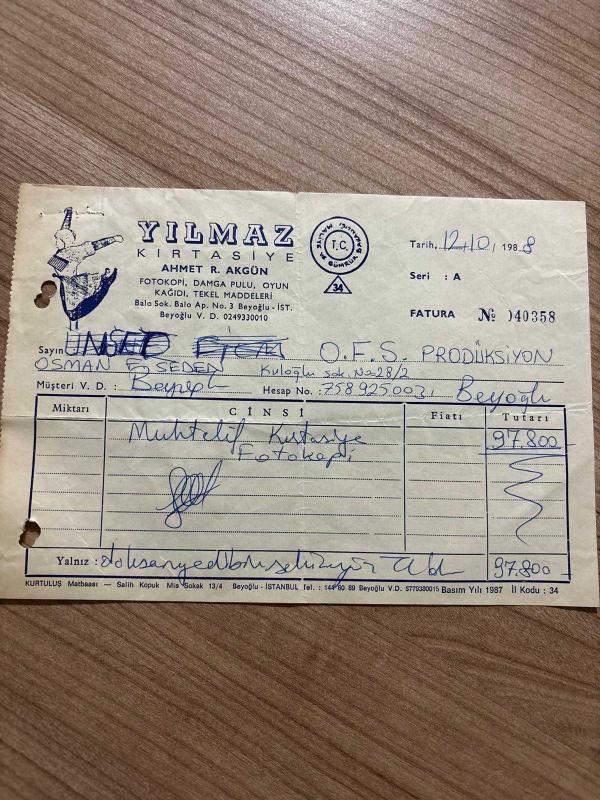 YILMAZ
KIRTASİYE
AHMET R. AKGÜN
FOTOKOPİ, DAMGA PULU, OYUN
KAĞIDI, TEKEL MADDELERİ
Balo Sok. Balo Ap. No. 3 Beyoğlu - İST.
Beyoğlu V. D. 0249330010
T.C.
34
Tarih, 12/10/1988
Seri : A
FATURA № 040358
Sayın O.F.S. PRODÜKSİYON
OSMAN F. SEDEN Kuloğlu sok. No=28/2
Müşteri V. D. : Beyoğlu Hesap No. : 7589250031 Beyoğlu
Miktarı CİNSİ Fiatı Tutarı
Muhtelif Kırtasiye 97.800
Fotokopi
Yalnız : doksanyedibinsekizyüz 97.800
KURTULUŞ Matbaası — Salih Kopuk Mis Sokak 13/4 Beyoğlu - İSTANBUL Tel. : 144 60 89 Beyoğlu V.D. 5779380015 Basım Yılı 1987 İl Kodu : 34